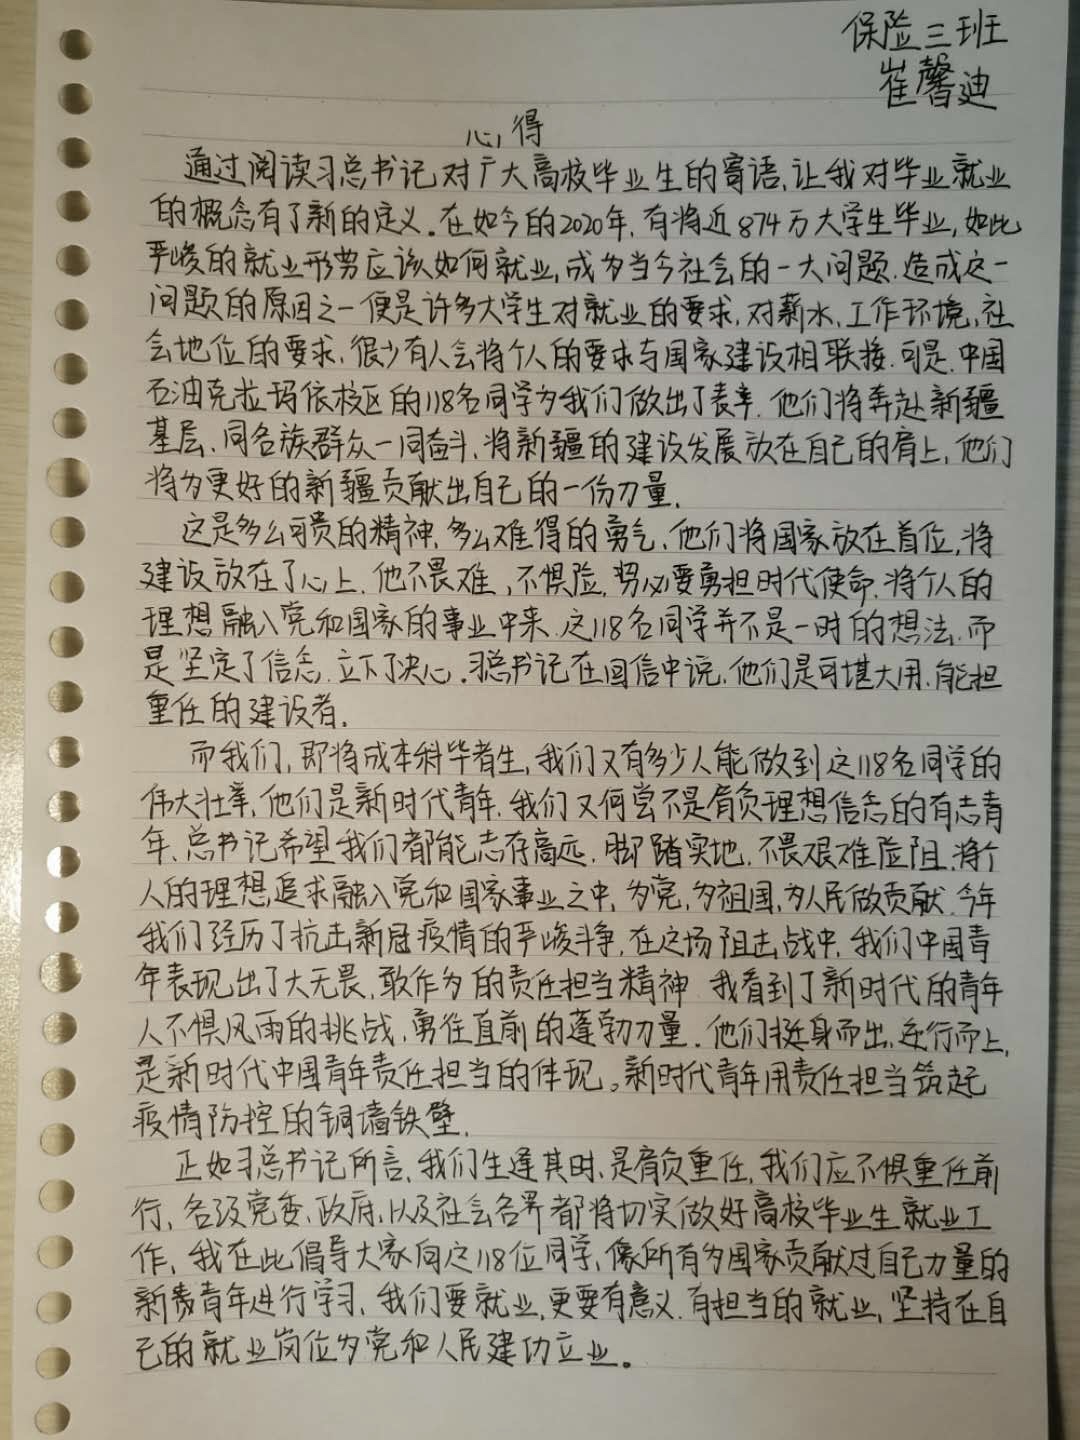 保险三班
崔馨迪
心得
通过阅读习总书记对广大高校毕业生的寄语,让我对毕业就业
的概念有了新的定义。在如今的2020年,有将近874万大学生毕业,如此
严峻的就业形势应该如何就业,成为当今社会的一大问题.造成这一
问题的原因之一便是许多大学生对就业的要求,对薪水,工作环境,社
会地位的要求,很少有人会将个人的要求与国家建设相联接.可是,中国
石油克拉玛依校区的118名同学为我们做出了表率.他们将奔赴新疆
基层、同各族群众一同奋斗,将新疆的建设发展放在自己的肩上,他们
将为更好的新疆贡献出自己的一份力量.
这是多么可贵的精神,多么难得的勇气,他们将国家放在首位,将
建设放在了心上.他不畏难,不惧险,努必要勇担时代使命.将个人的
理想融入党和国家的事业中来.这118名同学并不是一时的想法.而
是坚定了信念,立下了决心。习总书记在回信中说,他们是可堪大用,能担
重任的建设者.
而我们,即将成本科毕者生,我们又有多少人能做到这118名同学的
伟大壮举,他们是新时代青年.我们又何尝不是肩负理想信念的有志青
年、总书记希望我们都能志存高远.脚踏实地,不畏艰难险阻,将个
人的理想追求融入党和国家事业之中,为党,为祖国,为人民做贡献.今年
我们经历了抗击新冠疫情的严峻斗争,在这场阻击战中,我们中国青
年表现出了大无畏,敢作为的责任担当精神.我看到了新时代的青年
人不惧风雨的挑战,勇往直前的蓬勃力量.他们挺身而出,逆行而上,
是新时代中国青年责任担当的体现。新时代青年用责任担当筑起
疫情防控的铜墙铁壁.
正如习总书记所言,我们生逢其时、是肩负重任,我们应不惧重任前
行,各级党委、政府,以及社会各界都将切实做好高校毕业生就业工
作,我在此倡导大家向这118位同学,像所有为国家贡献过自己力量的
新青年进行学习,我们要就业,更要有意义.有担当的就业,坚持在自
己的就业岗位为党和人民建功立业。